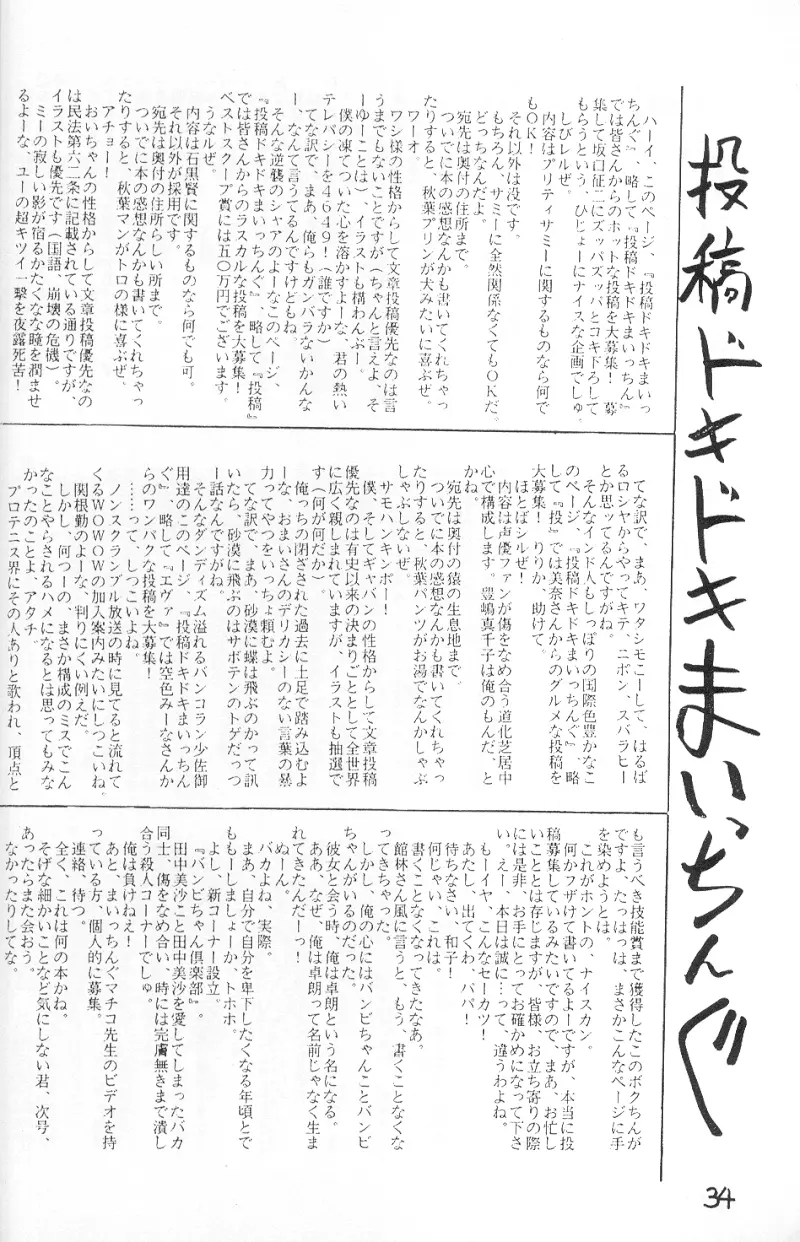 投稿ドキドキまいっちんぐ
ハーイ、このページ、『投稿ドキドキまいっ
ちんぐ』、略して『投稿ドキドキまいっちん』
では皆さんからのホットな投稿を大募集！　募
集して坂口征二にズッパズッパとコキ下ろして
もらうという、ひじょーにナイスな企画でしゅ。
しびレルぜ。
内容はプリティサミーに関するものなら何で
もOK！
それ以外は没です。
もちろん、サミーに全然関係なくてもOKだ。
どっちなんだよ。
宛先は奥付の住所まで。
ついでに本の感想なんかも書いてくれちゃっ
たりすると、秋葉プリンが犬みたいに喜ぶぜ。
ワーオ。
ワシ様の性格からして文章投稿優先なのは言
うまでもないことですが（ちゃんと言えよ、そ
ーゆーことは）、イラストも構わんぶー。
僕の凍てついた心を溶かすよーな、君の熱い
テレパシーを4649！（誰ですか）
てな訳で、まあ、俺らもガンバラないかんな
ー、なんて言うてるんですけどもね。
そんな逆襲のシャアのよーなこのページ、
『投稿ドキドキまいっちんぐ』、略して『投稿』
では皆さんからのラスカルな投稿を大募集！
ベストスクープ賞には五0万円でございます。
うなルぜ。
内容は石黒賢に関するものなら何でも可。
それ以外が採用です。
宛先は奥付の住所らしい所まで。
ついでに本の感想なんかも書いてくれちゃっ
たりすると、秋葉マンがトロの様に喜ぶぜ、
アチョー！
おいちゃんの性格からして文章投稿優先なの
は民法第六二条に記載されている通りですが、
イラストも優先です（国語、崩壊の危機）。
ミーの寂しい影が宿るかたくなな瞳を潤ませ
るよーな、ユーの超キツイ一撃を夜露死苦！
てな訳で、まあ、ワタシモニーして、はるば
るロシヤからやってキテ、ニポン、スバラヒー
とか思ってるんですがね。
そんなインド人もしっぽりの国際色豊かなこ
のページ、『投稿ドキドキまいっちんぐ』、略
して『投』では美奈さんからのグルメな投稿を
大募集！　りりか、助けて。
ほとばシルぜ！
内容は声優ファンが傷をなめ合う道化芝居中
心で構成します。豊嶋真千子は俺のもんだ、と
かね。
宛先は奥付の猿の生息地まで。
ついでに本の感想なんかも書いてくれちゃっ
たりすると、秋葉パンツがお湯でなんかしゃぶ
しゃぶしないぜ。
サモハンキンポー！
僕、そしてギャバンの性格からして文章投稿
優先なのは有史以来の決まりごととして全世界
に広く親しまれていますが、イラストも抽選で
す（何が何だか）。
俺っちの閉ざされた過去に土足で踏み込むよ
ーな、おまいさんのデリカシーのない言葉の暴
力ってやつをいっちょ頼むよ。
てな訳で、まあ、砂漠に蝶は飛ぶのかって訊
いたら、砂漠に飛ぶのはサボテンのトゲだっつ
ー話なんですがね。
そんなダンディズム溢れるバンコラン少佐御
用達のこのページ、『投稿ドキドキまいっちん
ぐ』、略して『エヴァ』では空色みーなさんか
らのワンパクな投稿を大募集！
……って、しつこいよね。
ノンスクランブル放送の時に見てると流れて
くるWOWOWの加入案内みたいにしつこいね。
関根勤のよーな、判りにくい例えだ。
しかし、何つーの、まさか構成のミスでこん
なことやらされるハメになるとは思ってもみな
かったのことよ、アタチ。
プロテニス界にその人ありと歌われ、頂点と
も言うべき技能賞まで獲得したこのボクちんが
ですよ、たっはっは、まさかこんなページに手
を染めようとは。
これがホントの、ナイスカン。
何かフザけて書いてるよーですが、本当に投
稿募集しているみたいですので、まあ、お忙し
いこととは存じますが、皆様、お立ち寄りの際
には是非、お手にとってお確かめになって下さ
い。えー、本日は誠に…って、違うわよね。
もーイヤ、こんなセーカツ！
あたし、出てくわ、パパ！
待ちなさい、和子！
何じゃい、これは。
書くことなくなってきたなあ。
館林さん風に言うと、もう、書くことなくな
ってきちゃった。
しかし、俺の心にはバンビちゃんことバンビ
ちゃんがいるのだった。
彼女と会う時、俺は卓朗という名になる。
ああ、なぜ、俺は卓朗って名前じゃなく生ま
れてきたんだーっ！
ぬーん。
バカよね、実際。
まあ、自分で自分を卑下したくなる年頃とで
もしましょーか、トホホ。
よし、新コーナー設立。
『バンビちゃん倶楽部』。
田中美沙こと田中美沙を愛してしまったバカ
同士、傷をなめ合い、時には完膚無きまで潰し
合う殺人コーナーでしゅ。
俺は負けねえ！
あと、まいっちんぐマチコ先生のビデオを持
っている方、個人的に募集。
連絡、待つ。
全く、これは何の本かね。
そげな細かいことなど気にしない君、次号、
あったらまた会おう。
なかったりしてな。
34